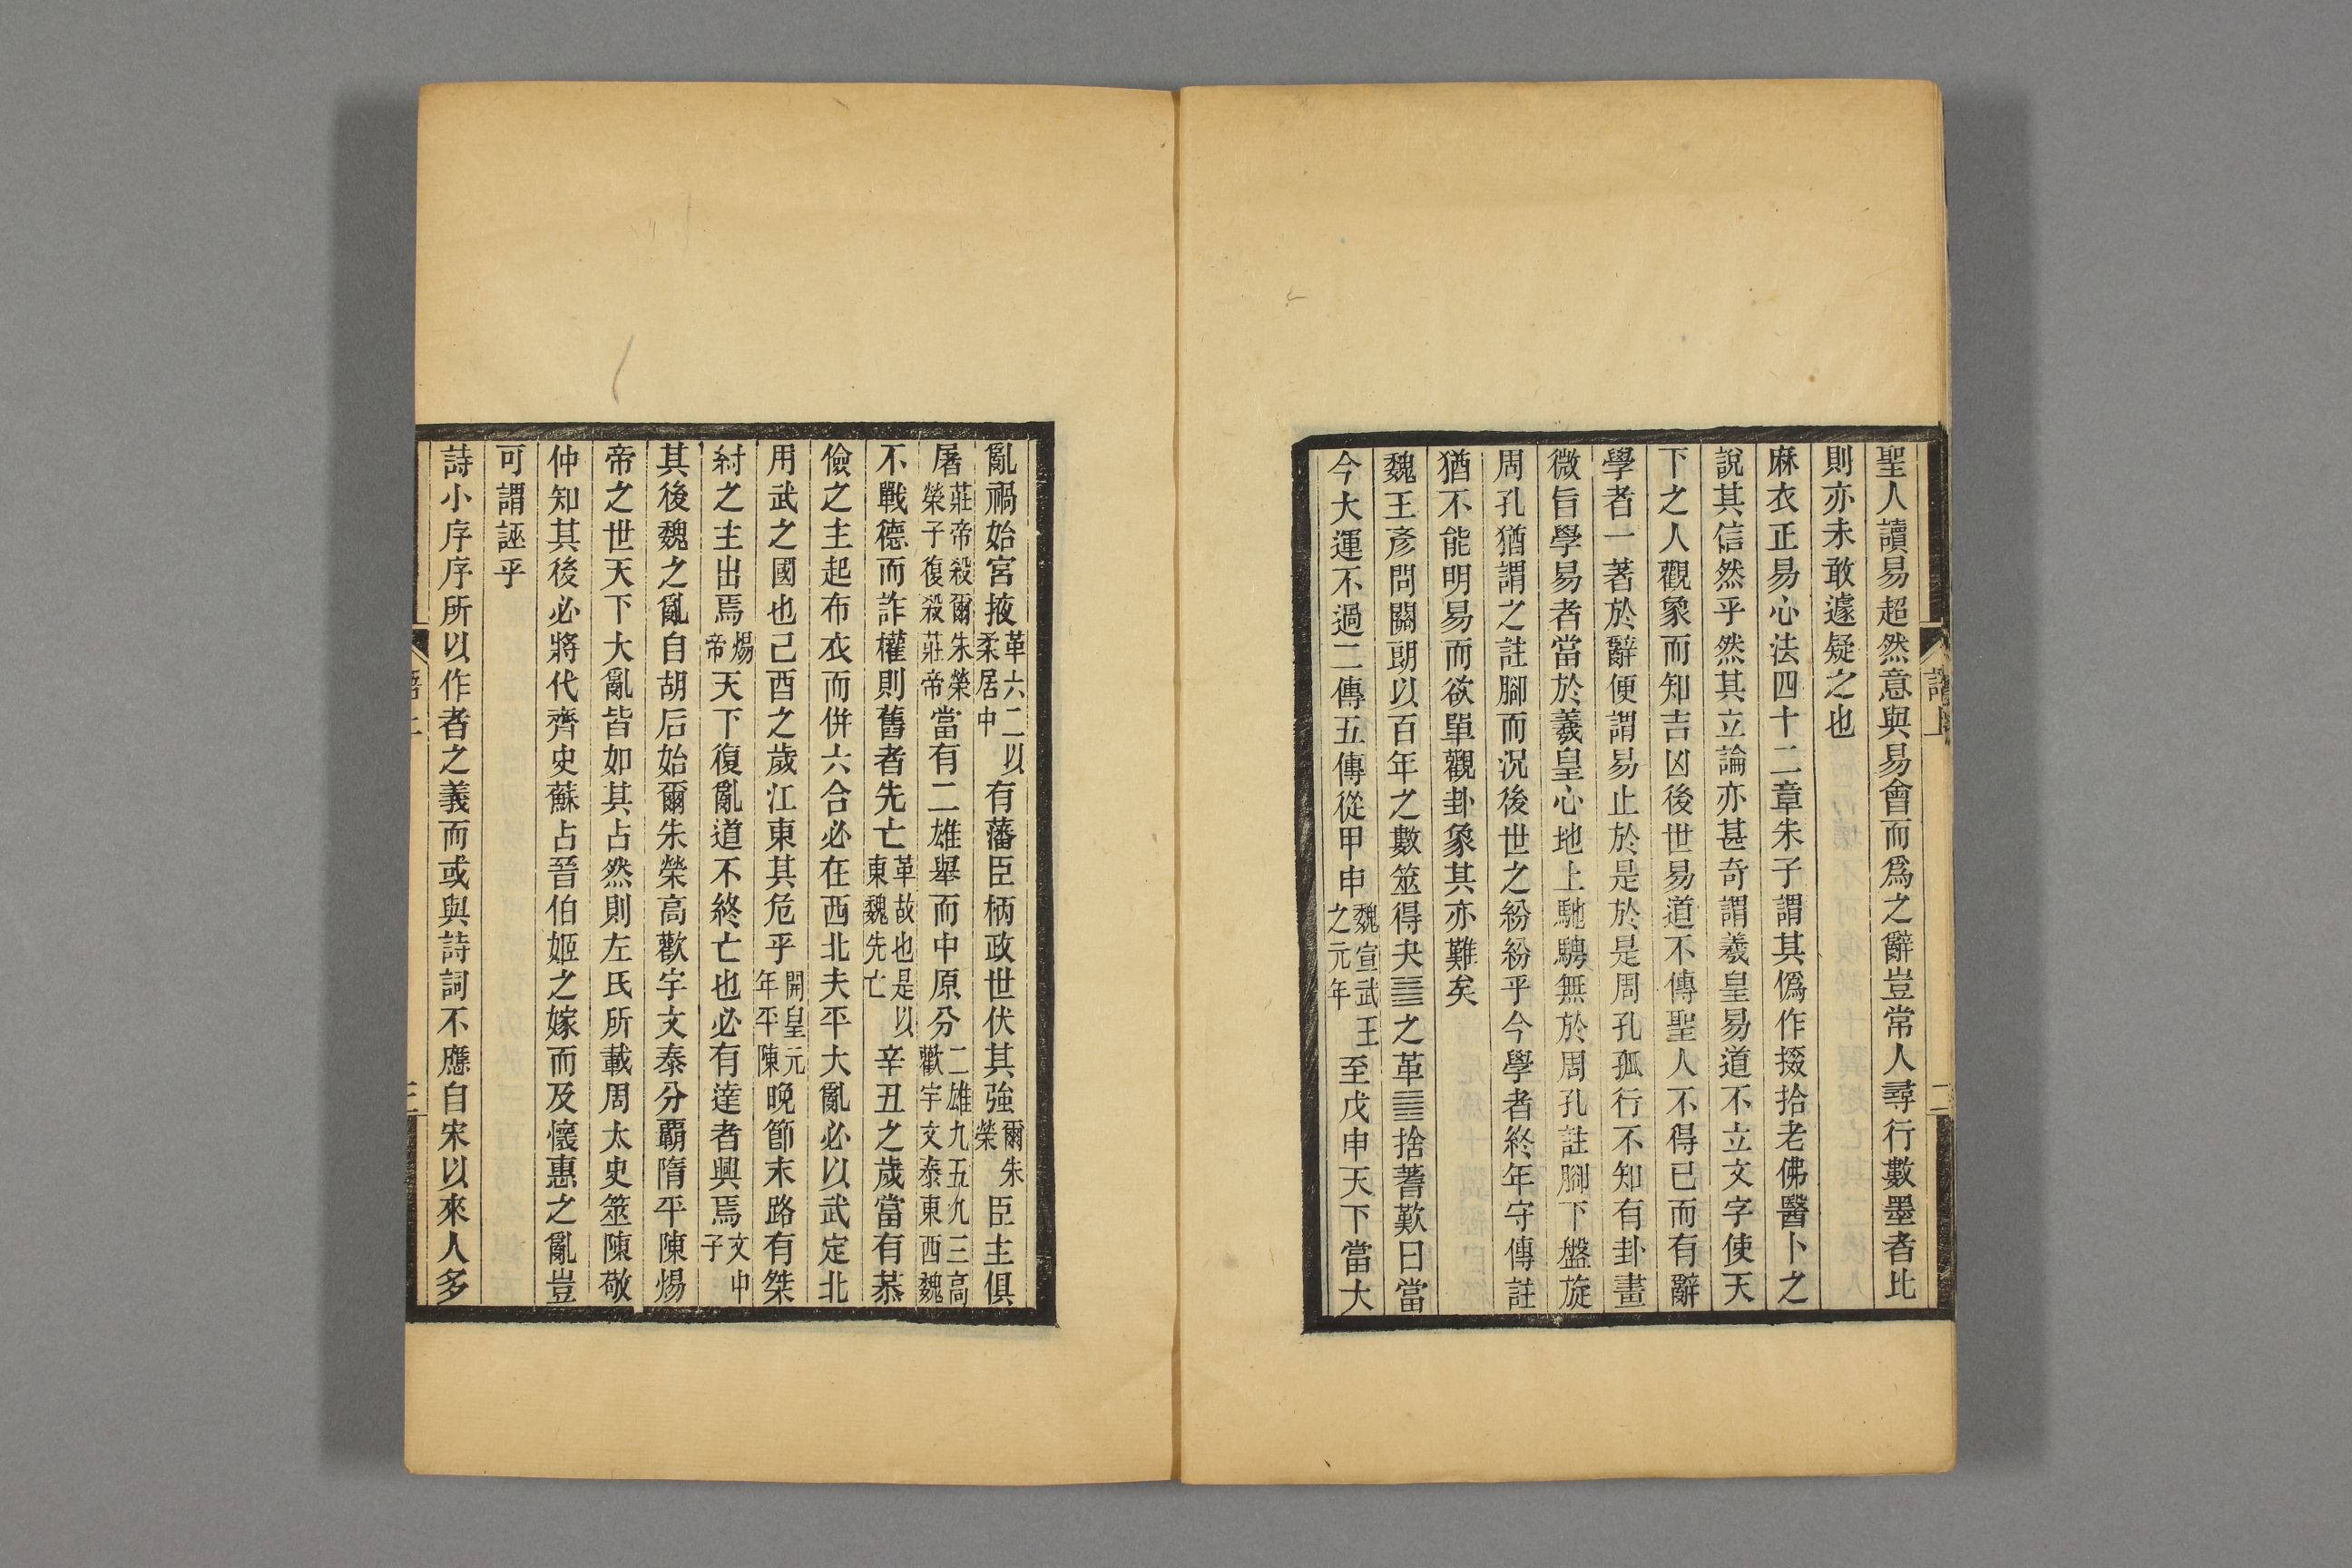 聖人讀易超然意與易會而爲之辭豈常人尋行數墨者比
則亦未敢遽疑之也
麻衣正易心法四十二章朱子謂其僞作掇拾老佛醫卜之
說其信然乎然其立論亦甚奇謂羲皇易道不立文字使天
下之人觀象而知吉凶後世易道不傳聖人不得已而有辭
學者一著於辭便謂易止於是於是周孔孤行不知有卦畫
微旨學易者當於羲皇心地上馳騁無於周孔註腳下盤旋
周孔猶謂之註腳而況後世之紛紛乎今學者終年守傳註
猶不能明易而欲單觀卦象其亦難矣
魏王彥問關朗以百年之數筮得夬䷪之革䷰捨蓍歎曰當
今大運不過二傳五傳從甲申魏宣武王之元年至戊申天下當大
亂禍始宮掖革六二以柔居中有藩臣柄政世伏其強爾朱榮臣主俱
屠莊帝殺爾朱榮榮子復殺莊帝當有二雄舉而中原分二雄九五九三高歡宇文泰東西魏
不戰德而詐權則舊者先亡革故也是以東魏先亡辛丑之歲當有恭
儉之主起布衣而併六合必在西北夫平大亂必以武定北
用武之國也己酉之歲江東其危乎開皇元年平陳晚節末路有桀
紂之主出焉煬帝天下復亂道不終亡也必有達者興焉文中子
其後魏之亂自胡后始爾朱榮高歡宇文泰分霸隋平陳煬
帝之世天下大亂皆如其占然則左氏所載周太史筮陳敬
仲知其後必將代齊史蘇占晉伯姬之嫁而及懷惠之亂豈
可謂誣乎
詩小序序所以作者之義而或與詩詞不應自宋以來人多